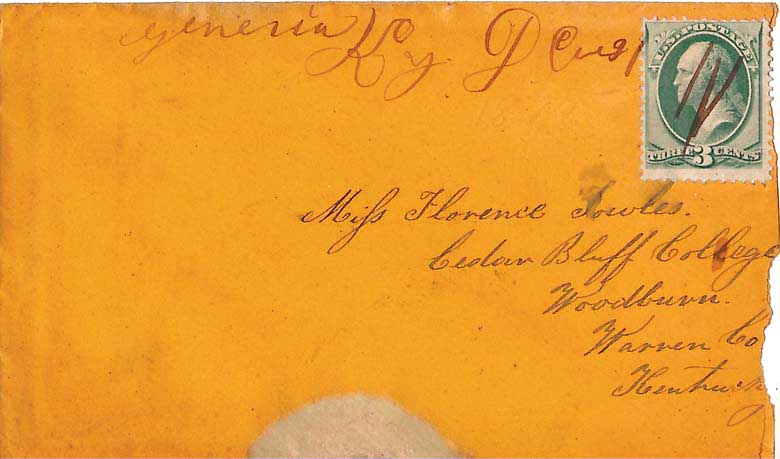 Ky D
U.S. POSTAGE
THREE 3 CENTS
Miss Florence Fowles.
Cedar Bluff College
Woodburn.
Warren Co
Kentucky